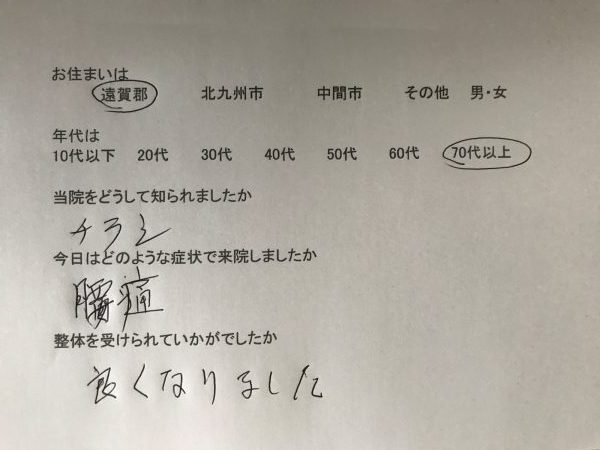 お住まいは
遠賀郡 北九州市 中間市 その他 男・女
年代は
10代以下 20代 30代 40代 50代 60代 70代以上
当院をどうして知られましたか
チラシ
今日はどのような症状で来院しましたか
腰痛
整体を受けられていかがでしたか
良くなりました